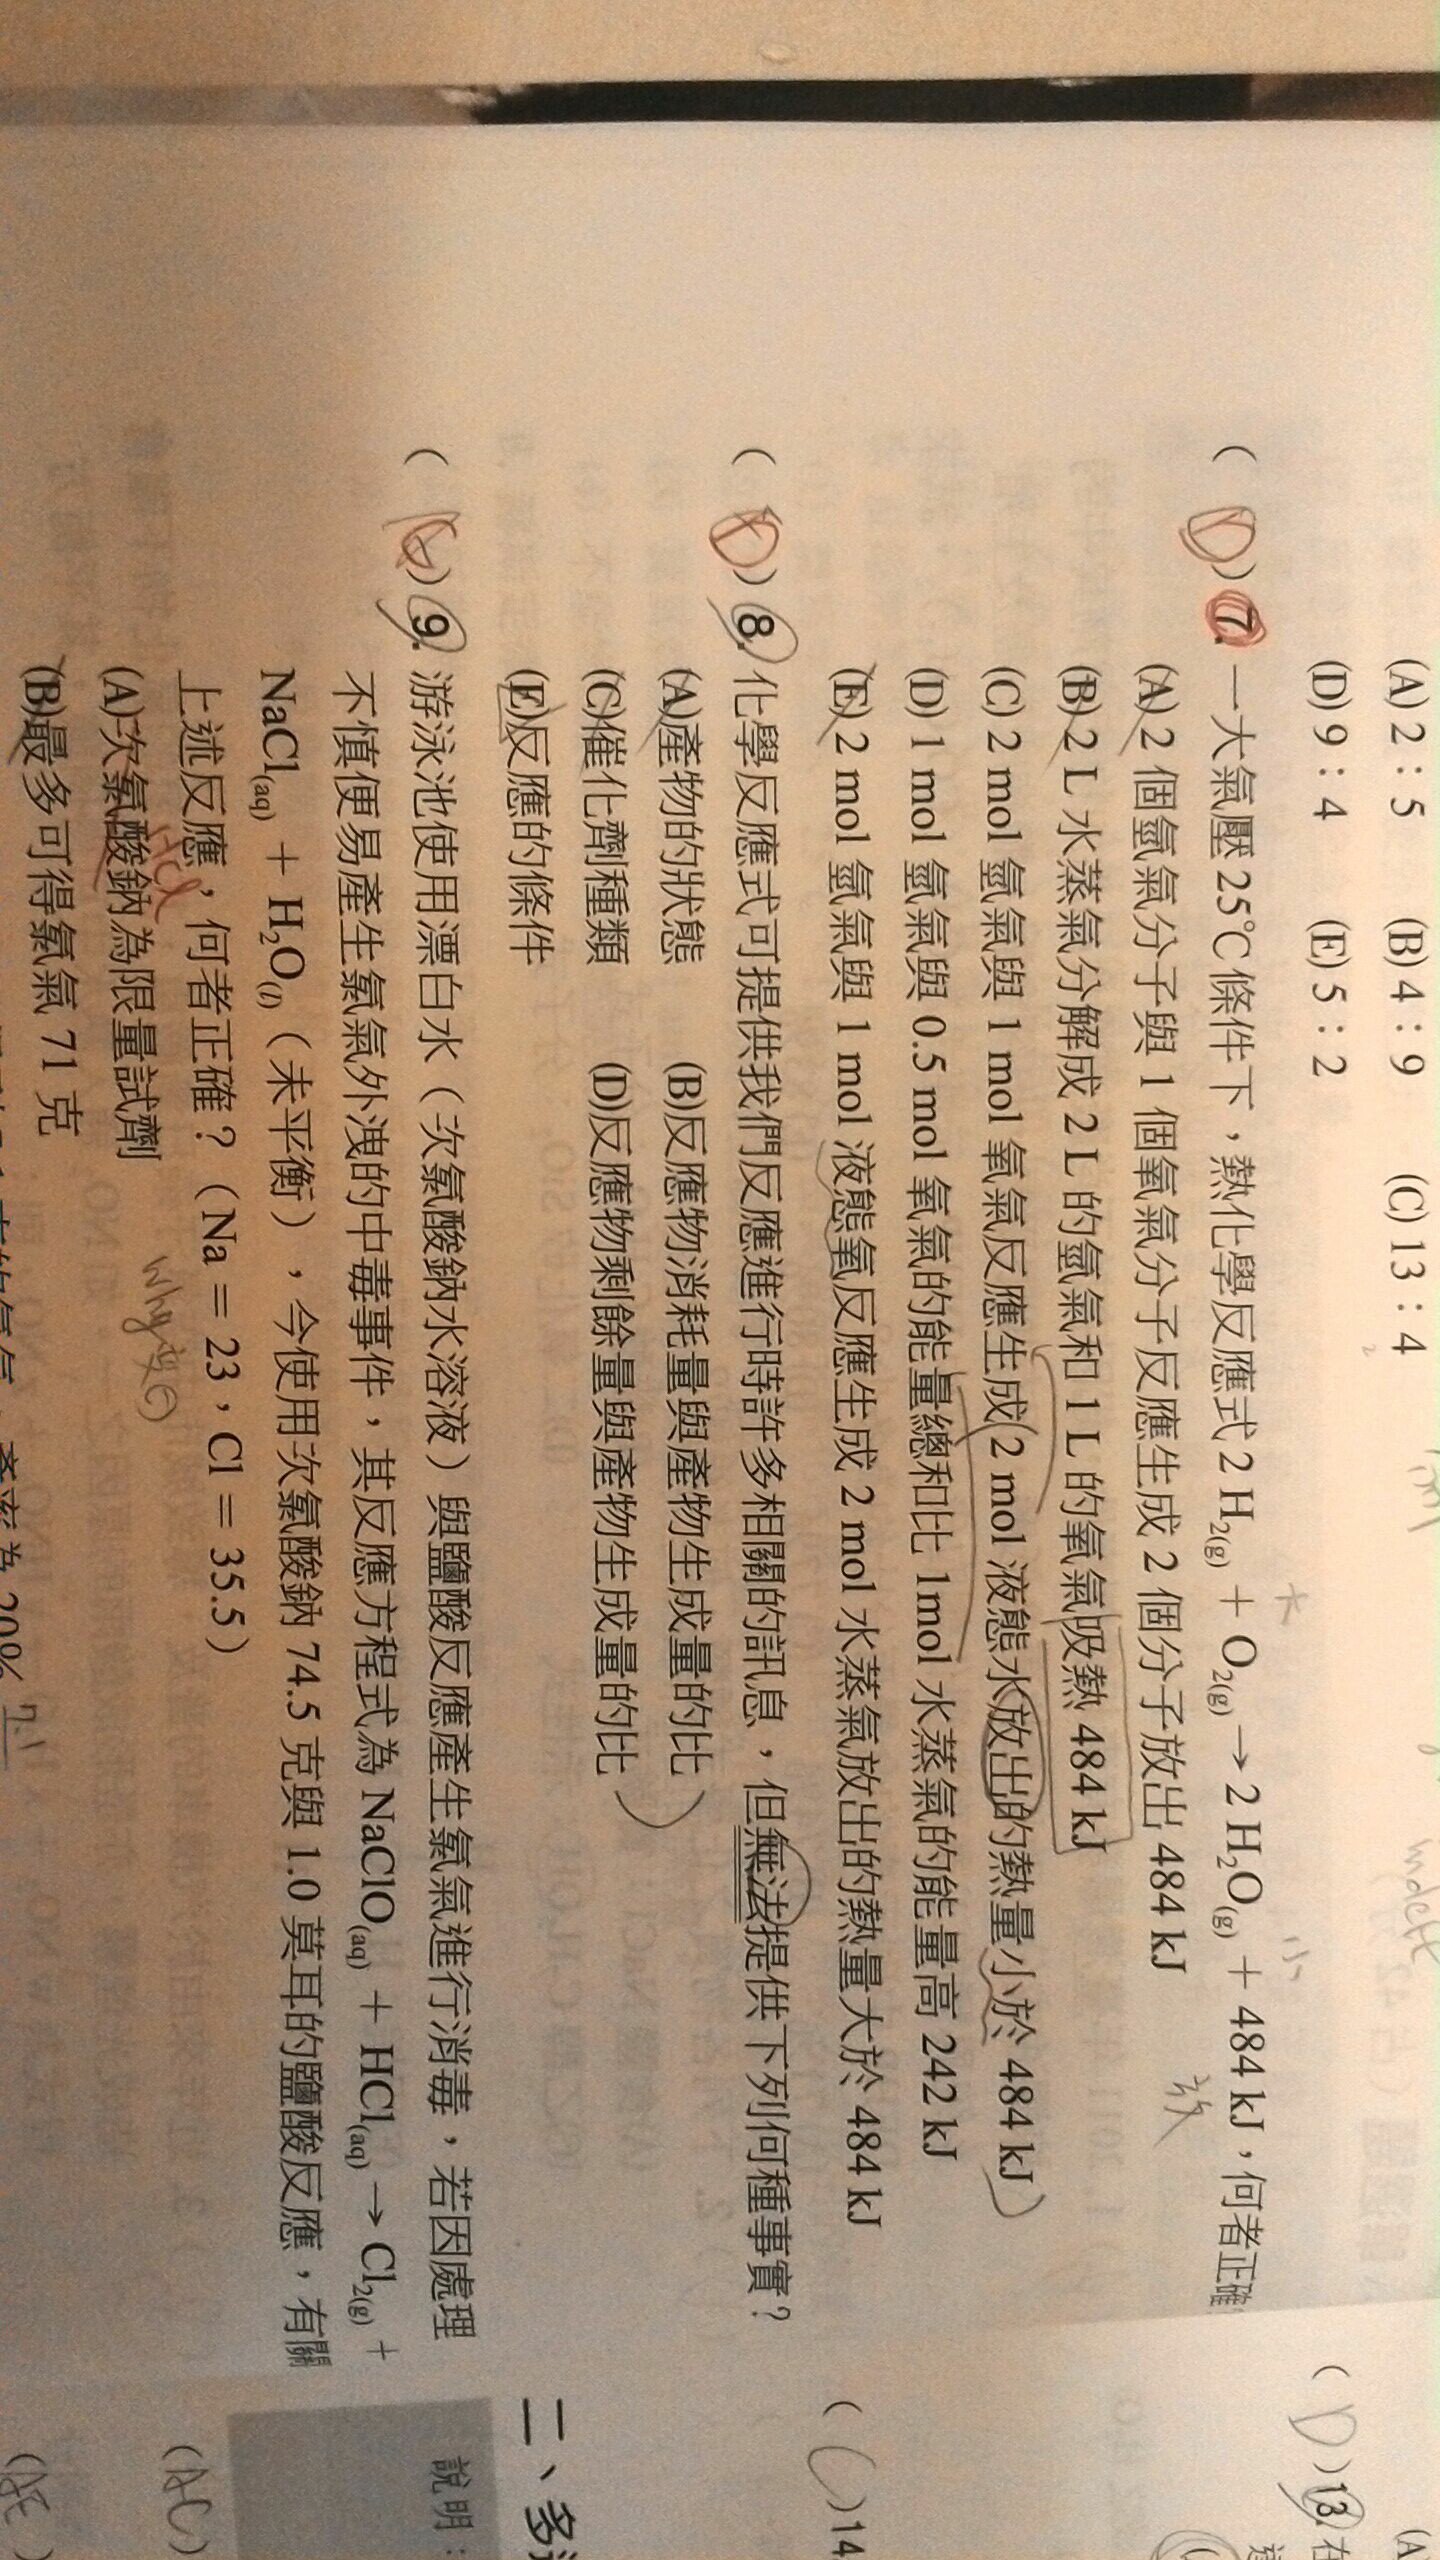 (A) 2：5 (B) 4：9 (C) 13：4
(D) 9：4 (E) 5：2
( D ) 7. 一大氣壓 25℃ 條件下，熱化學反應式 2 H2(g) ＋ O2(g) → 2 H2O(g) ＋ 484 kJ，何者正確
大
小
放
(A) 2 個氫氣分子與 1 個氧氣分子反應生成 2 個分子放出 484 kJ
(B) 2 L 水蒸氣分解成 2 L 的氫氣和 1 L 的氧氣吸熱 484 kJ
(C) 2 mol 氫氣與 1 mol 氧氣反應生成 2 mol 液態水放出的熱量小於 484 kJ
(D) 1 mol 氫氣與 0.5 mol 氧氣的能量總和比 1mol 水蒸氣的能量高 242 kJ
(E) 2 mol 氫氣與 1 mol 液態氧反應生成 2 mol 水蒸氣放出的熱量大於 484 kJ
( D ) 8. 化學反應式可提供我們反應進行時許多相關的訊息，但無法提供下列何種事實？
(A)產物的狀態 (B)反應物消耗量與產物生成量的比
(C)催化劑種類 (D)反應物剩餘量與產物生成量的比
(E)反應的條件
9. 游泳池使用漂白水（次氯酸鈉水溶液）與鹽酸反應產生氯氣進行消毒，若因處理
不慎便易產生氯氣外洩的中毒事件，其反應方程式為 NaClO(aq) ＋ HCl(aq) → Cl2(g) ＋
NaCl(aq) ＋ H2O(l)（未平衡），今使用次氯酸鈉 74.5 克與 1.0 莫耳的鹽酸反應，有關
上述反應，何者正確？（Na ＝ 23，Cl ＝ 35.5）
(A)次氯酸鈉為限量試劑
HCl
why
(B)最多可得氯氣 71 克
產率為 20%
7.1
( D ) 13. 在
( C ) 14.
二、多
說明：
(AC)
(AE)